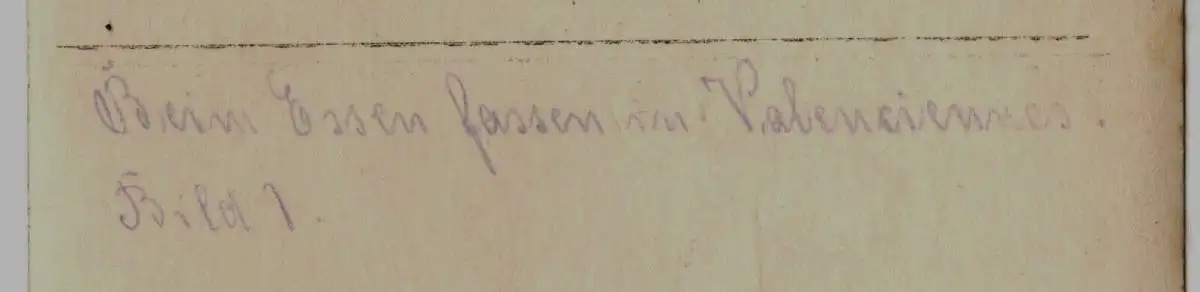 Beim Essen fassen in Valenciennes.
Bild 1.